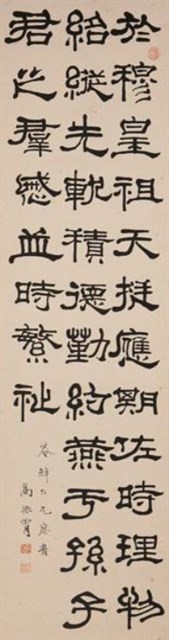 於穆皇祖天挺應期佐時理物
紹縱先軌積德勤約燕于孫子
君之羣慼並時繁祉
仁兄
高振霄